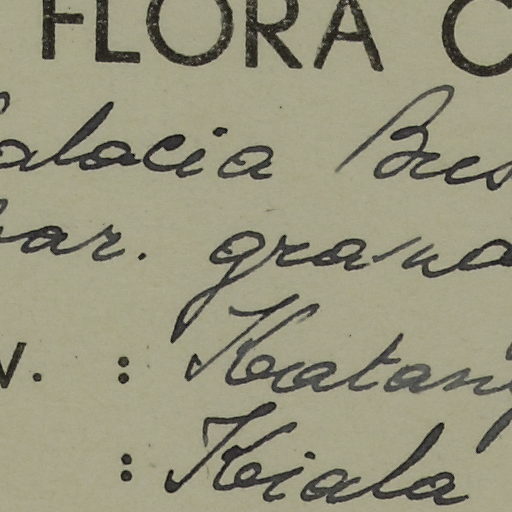 FLORA C
alacia Bus
var. grana
V. : Katang
: Kiala